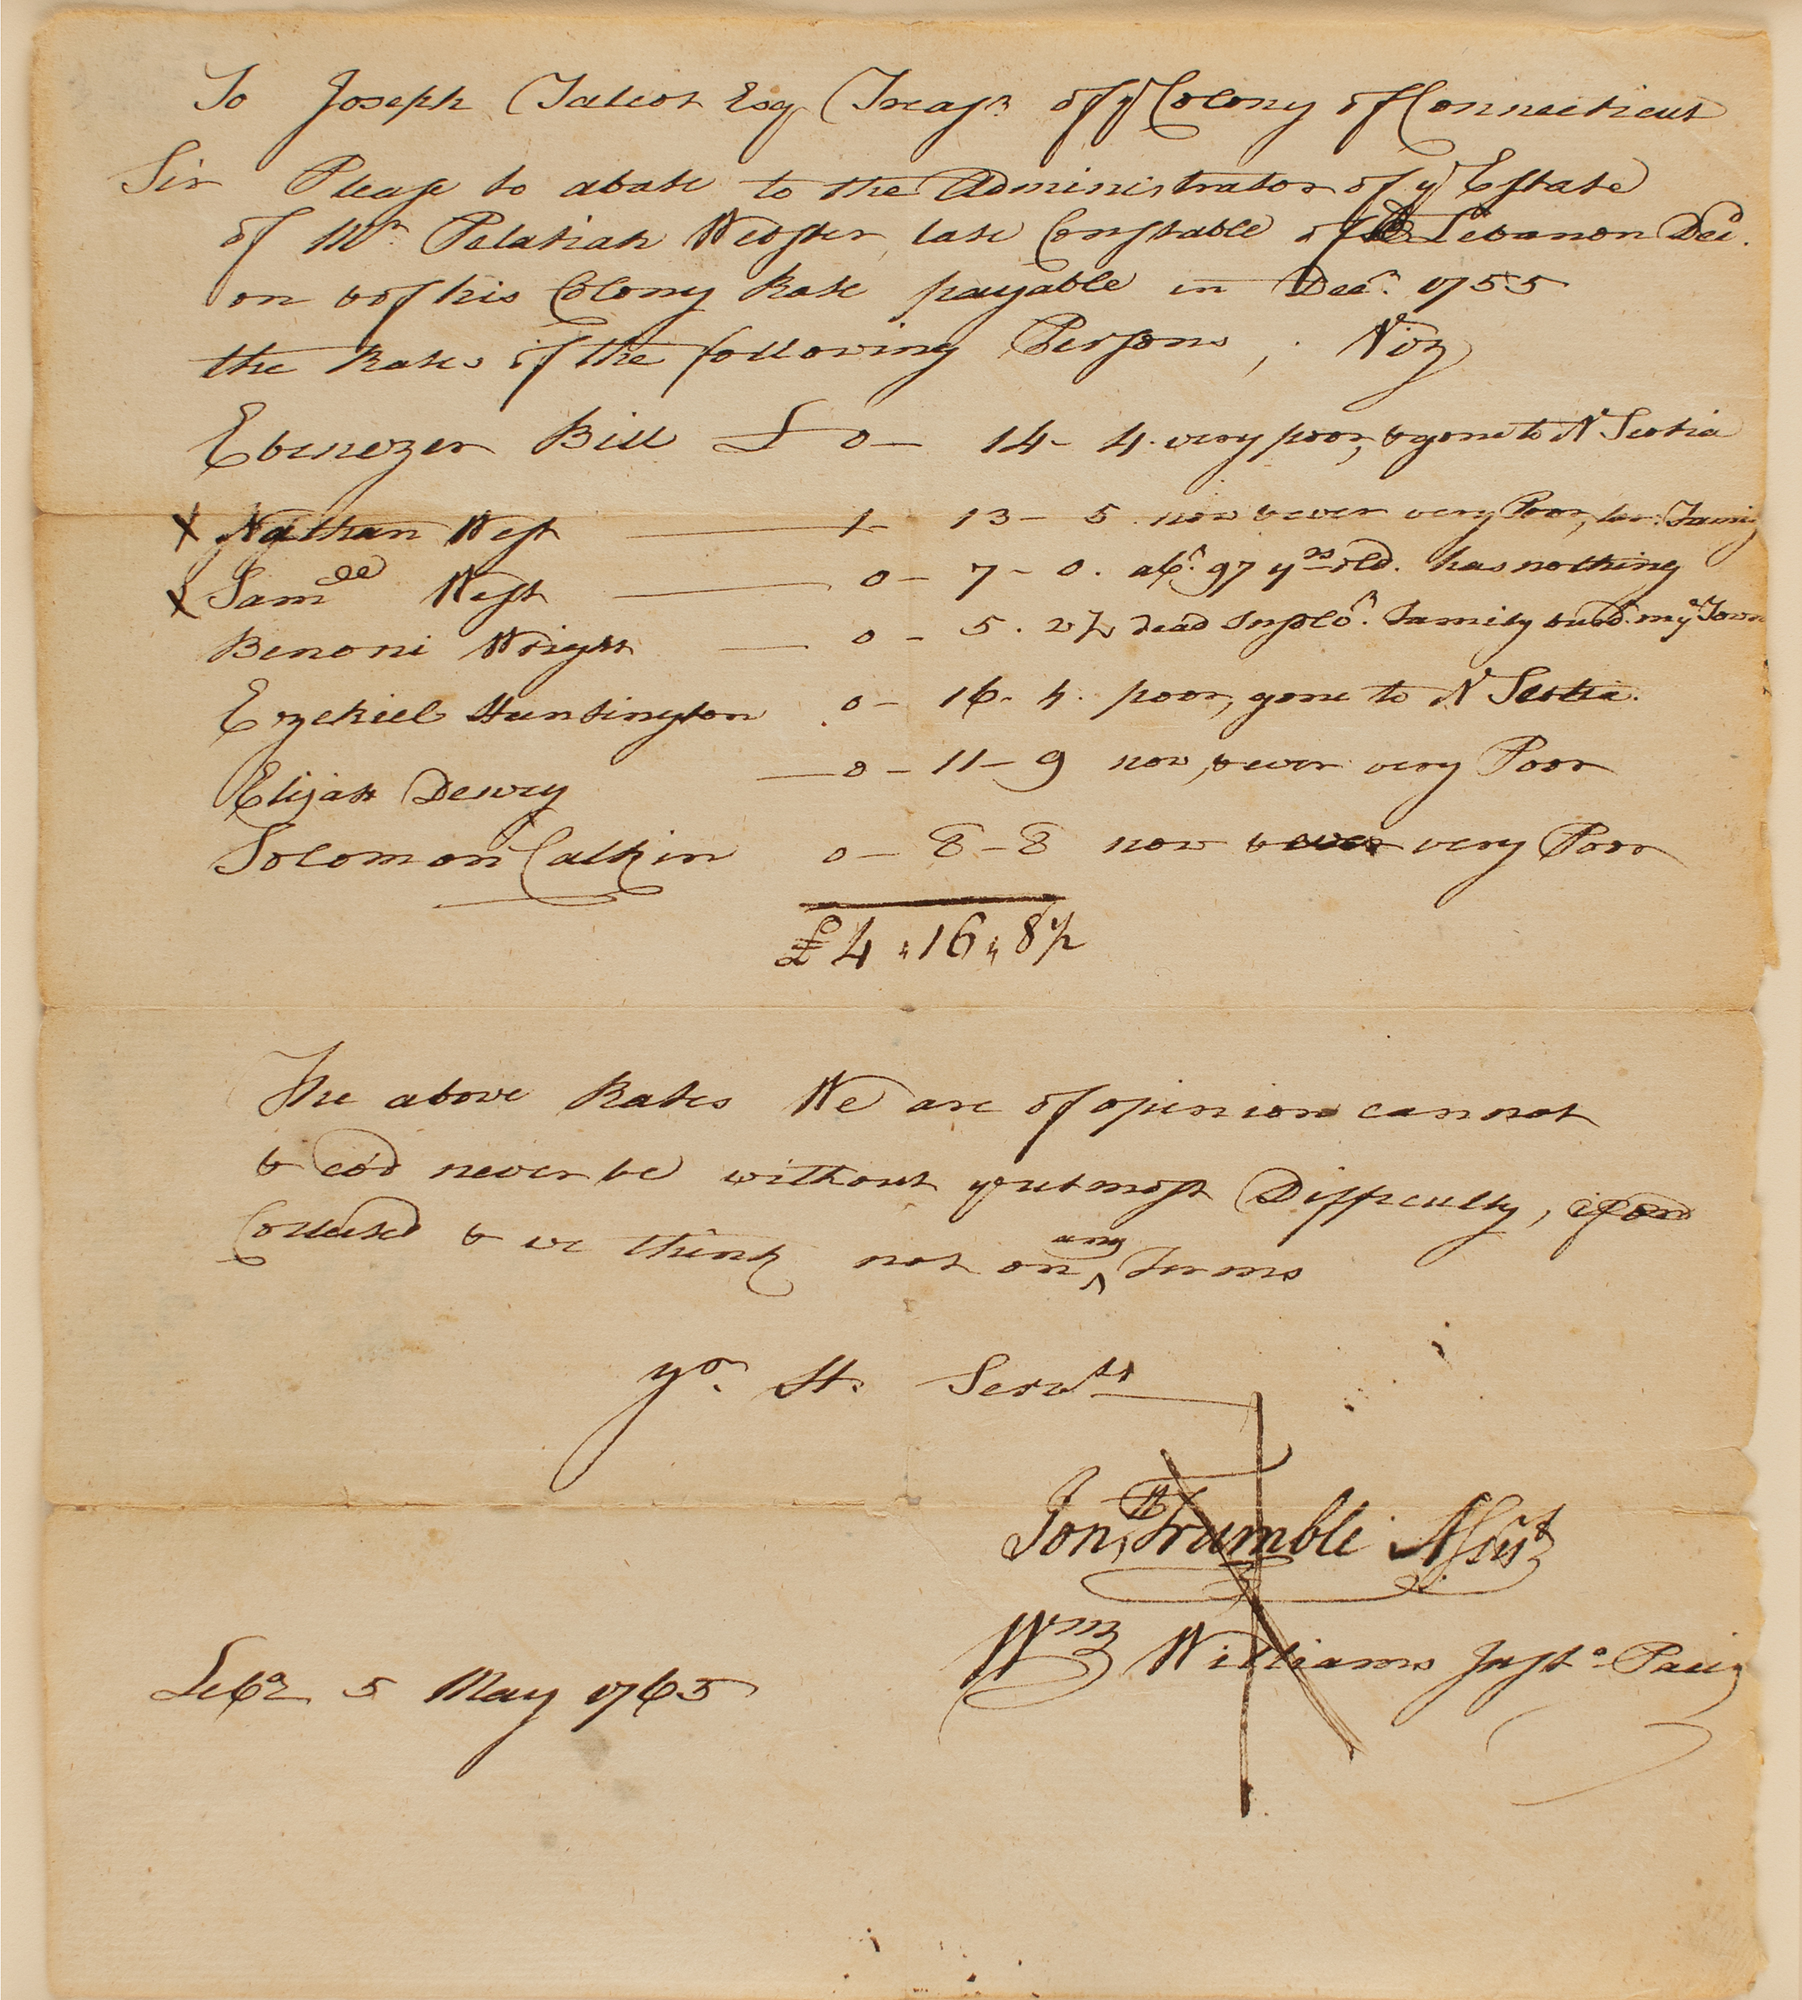 To Joseph Talcot Esq Treasr of ye Colony of Connecticut
Sir Please to abate to the Administrator of ye Estate
of Mr Pelatiah Webster, late Constable of Lebanon Decd.
on & of his Colony Rate payable in Decr. 1755
the Rates of the following Persons, Viz
Ebenezer Bill £ 0 – 14 – 4. very poor, & gone to N Scotia
X Nathan West 1 – 13 – 5. now & ever very Poor, Family
X Samll West 0 – 7 – 0. abt. 97 yrs old. has nothing
Benoni Wright 0 – 5. 2½ dead Insolvt. Family ye Town
Ezekiel Huntington 0 – 16 – 4. poor, gone to N Scotia.
Elijah Dewey 0 – 11 – 9 now, & ever very Poor
Solomon Calkin 0 – 8 – 8 now & ever very Poor
£4 „ 16 „ 8½
The above Rates We are of opinion cannot
& cod never be without ye utmost Difficulty,
Collected & we think not on any Terms
yr. H. Servts
Jonth Trumble Assist
Wm Williams Just. Pacis
Lebn 5 May 1765